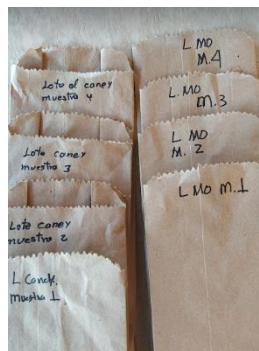 Lote el caney
muestra 4
Lote caney
muestra 3
Lote caney
muestra 2
L Caney
muestra 1
L MO
M.4
L. MO
M.3
L MO
M. 2
L MO M.1